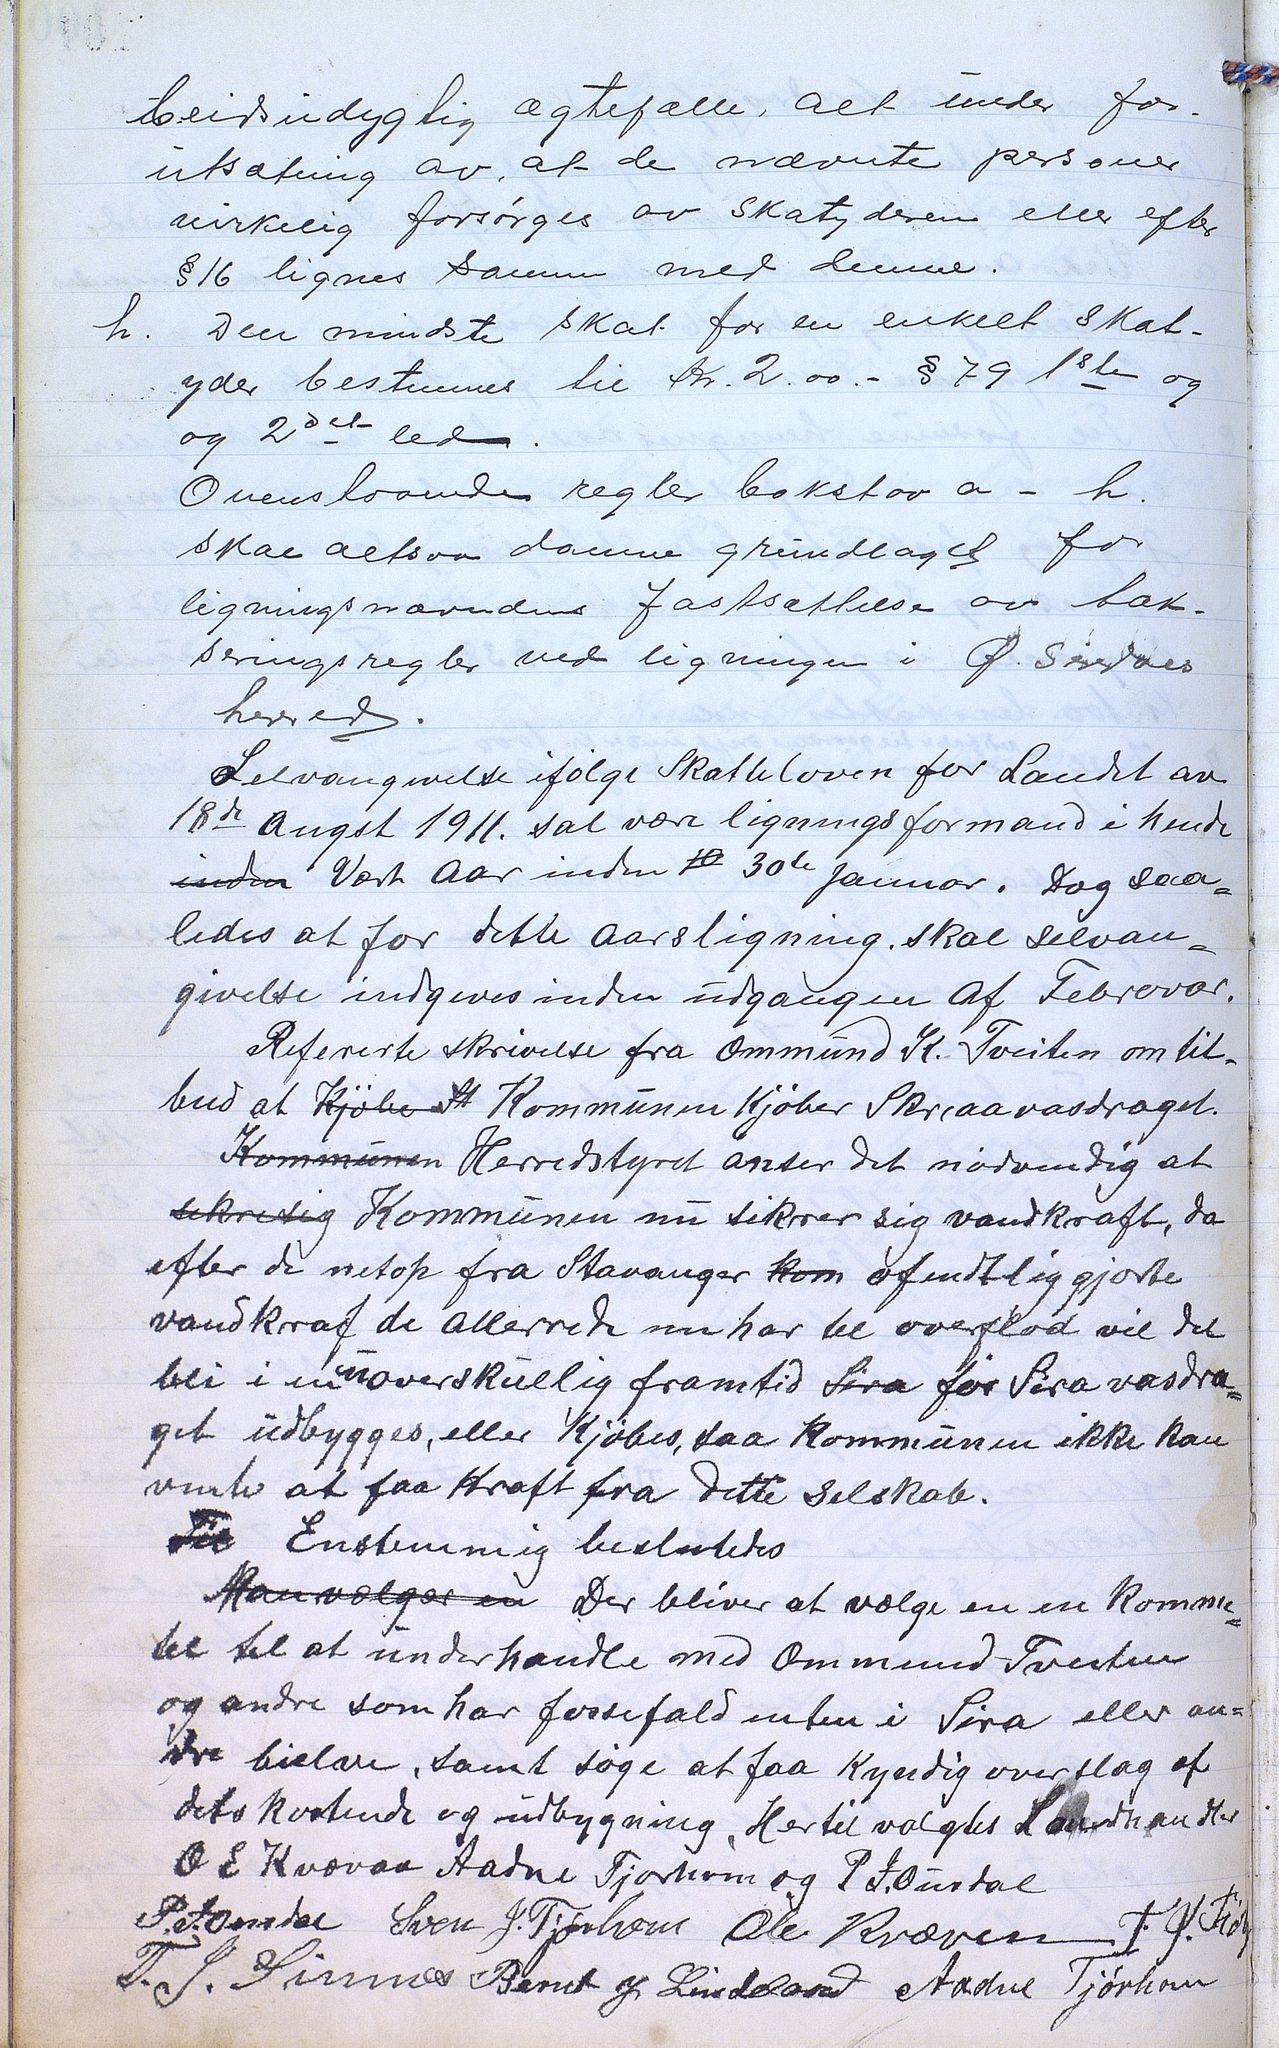 beidsudygtig ægtefælle, alt under for-
utsætning av, at de nævnte personer
virkelig forsørges av skatyderen eller efter
§ 16 lignes sammen med denne.
h. Den mindste skat for en enkelt skat-
yder bestemmes til Kr. 2.00.- § 79 1ste og
og 2det led.
Ovenstaaende regler bokstav a - h.
skal altsaa danne grundlaget for
ligningsnævndens fastsættelse av tak-
seringsregler ved ligningen i Ø. Sirdales
herred.
Selvangivelse ifølge Skatteloven for Landet av
18de Augst 1911. sal være ligningsformand i hende
inden Vært Aar inden 10 30te Januar. Dog saa-
ledes at for dette Aarsligning. skal selvan-
givelse indgives inden udgangen af Februar.
Refererte skrivelse fra Ommund K. Tveiten om til-
bud at Kjöbe St Kommunen Kjöber Skreaavasdraget.
Kommunen Herredstyret anser det nödvendig at
sikre sig Kommunen nu sikrer sig vandkraft, da
efter de netop fra Stavanger kom ofendtliggjorte
vandkraf de Allerrede nu har til overflod vil det
bli i en uoverskuellig framtid Sira för Sira vasdra-
get udbygges, eller Kjöbes, saa Kommunen ikke kan
vente at faa Kraft fra dette selskab.
Til Enstemmig besluttedes
Man vælger en Der bliver at vælge en en Komme-
tel til at underhandle med Ommund Tveiten
og andre som har fossefald enten i Sira eller an-
dre bielve, samt söge at faa Kyndig overslag af
dets kostende og udbygning, Hertil valgtes Landhandler
O E Kvævaa Aadne Tjorhom og P. J. Ousdal
P. J. Ousdal Sven J. Tjørhom Ole Kræven T. J.
T. J. Sinnes Bernt J Lindeland Aadne Tjørhom